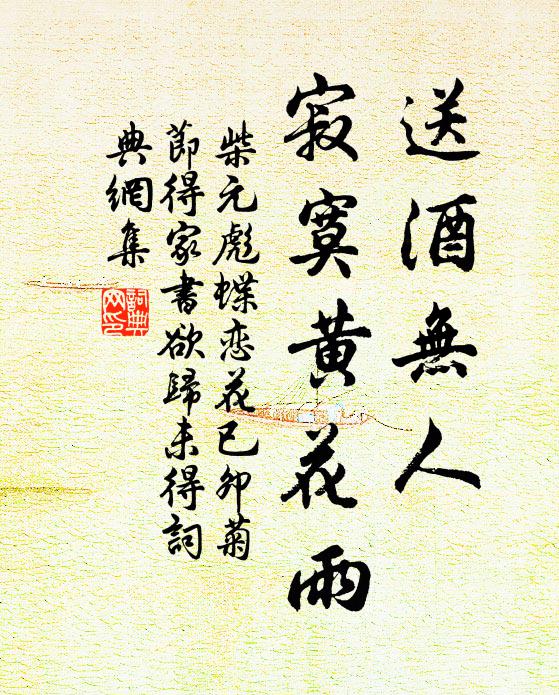 送酒無人
寂寞黄花雨
柴元彪蝶恋花已卯菊
節得家書欲歸未得詞
典網集
詞典
网印